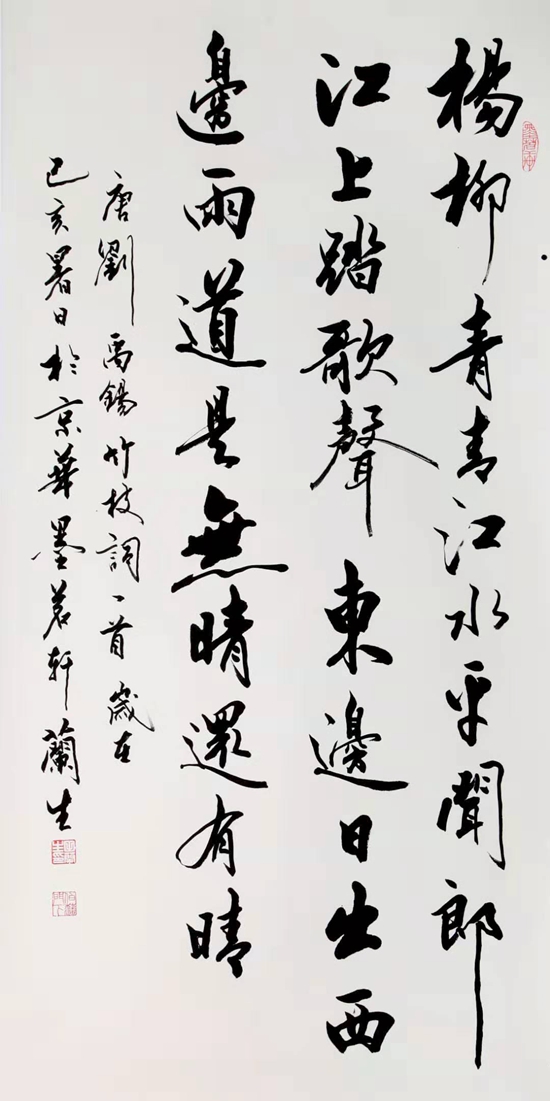 楊柳青青江水平聞郎
江上踏歌聲東邊日出西
邊雨道是無晴還有晴
唐劉禹錫竹枝詞一首歲在
己亥暑日於京華墨茗軒蘭生